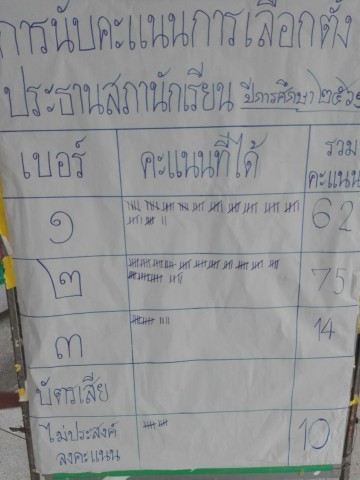 การนับคะแนนการเลือกตั้ง
ประธานสภานักเรียน ปีการศึกษา ๒๕๖
เบอร์ คะแนนที่ได้ รวมคะแนน
๑ 62
๒ 75
๓ 14
บัตรเสีย
ไม่ประสงค์ลงคะแนน 10